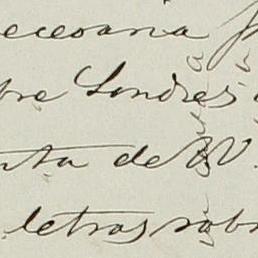 necesaria
bre Londres
enta de VV.
letras sobre